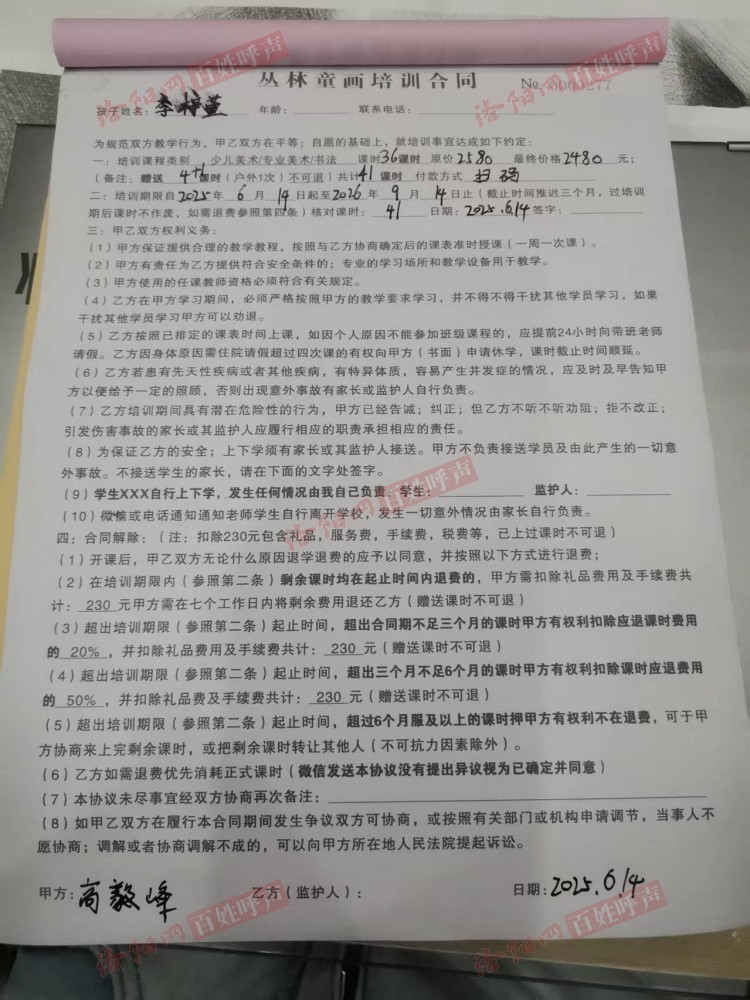 丛林童画培训合同 No. 0000277
洛阳网 百姓呼声
孩子姓名:李梓萱 年龄: 联系电话:
为规范双方教学行为,甲乙双方在平等;自愿的基础上,就培训事宜达成如下约定:
一:培训课程类别 少儿美术/专业美术/书法 课时36课时 原价2580 最终价格2480元;
(备注:赠送 4+1课时(户外1次)不可退)共计41课时 付款方式 扫码
二:培训期限自2025年6月14日起至2026年9月14日止(截止时间推迟三个月,过培训
期后课时不作废,如需退费参照第四条)核对课时:41 日期:2025.6.14签字:
三:甲乙双方权利义务:
(1)甲方保证提供合理的教学教程,按照与乙方协商确定后的课表准时授课(一周一次课)。
(2)甲方有责任为乙方提供符合安全条件的;专业的学习场所和教学设备用于教学。
(3)甲方使用的任课教师资格必须符合有关规定。
(4)乙方在甲方学习期间,必须严格按照甲方的教学要求学习,并不得不得干扰其他学员学习,如果
干扰其他学员学习甲方可以劝退。
(5)乙方按照已排定的课表时间上课,如因个人原因不能参加班级课程的,应提前24小时向带班老师
请假。乙方因身体原因需住院请假超过四次课的有权向甲方(书面)申请休学,课时截止时间顺延。
(6)乙方若患有先天性疾病或者其他疾病,有特异体质,容易产生并发症的情况,应及时及早告知甲
方以便给予一定的照顾,否则出现意外事故有家长或监护人自行负责。
(7)乙方培训期间具有潜在危险性的行为,甲方已经告诫;纠正;但乙方不听不听劝阻;拒不改正;
引发伤害事故的家长或其监护人应履行相应的职责承担相应的责任。
(8)为保证乙方的安全;上下学须有家长或其监护人接送。甲方不负责接送学员及由此产生的一切意
外事故。不接送学生的家长,请在下面的文字处签字。
(9)学生XXX自行上下学,发生任何情况由我自己负责;学生: 监护人:
(10)微信或电话通知通知老师学生自行离开学校,发生一切意外情况由家长自行负责。
四:合同解除:(注:扣除230元包含礼品,服务费,手续费,税费等,已上过课时不可退)
(1)开课后,甲乙双方无论什么原因退学退费的应予以同意,并按照以下方式进行退费;
(2)在培训期限内(参照第二条)剩余课时均在起止时间内退费的,甲方需扣除礼品费用及手续费共
计:230元甲方需在七个工作日内将剩余费用退还乙方(赠送课时不可退)
(3)超出培训期限(参照第二条)起止时间,超出合同期不足三个月的课时甲方有权利扣除应退课时费用
的 20%,并扣除礼品费用及手续费共计:230元(赠送课时不可退)
(4)超出培训期限(参照第二条)起止时间,超出三个月不足6个月的课时甲方有权利扣除课时应退费用
的 50%,并扣除礼品费及手续费共计:230元(赠送课时不可退)
(5)超出培训期限(参照第二条)起止时间,超过6个月服及以上的课时押甲方有权利不在退费,可于甲
方协商来上完剩余课时,或把剩余课时转让其他人(不可抗力因素除外)。
(6)乙方如需退费优先消耗正式课时(微信发送本协议没有提出异议视为已确定并同意)
(7)本协议未尽事宜经双方协商再次备注:
(8)如甲乙双方在履行本合同期间发生争议双方可协商,或按照有关部门或机构申请调节,当事人不
愿协商;调解或者协商调解不成的,可以向甲方所在地人民法院提起诉讼。
甲方:高毅峰 乙方(监护人): 日期:2025.6.14
洛阳网 百姓呼声